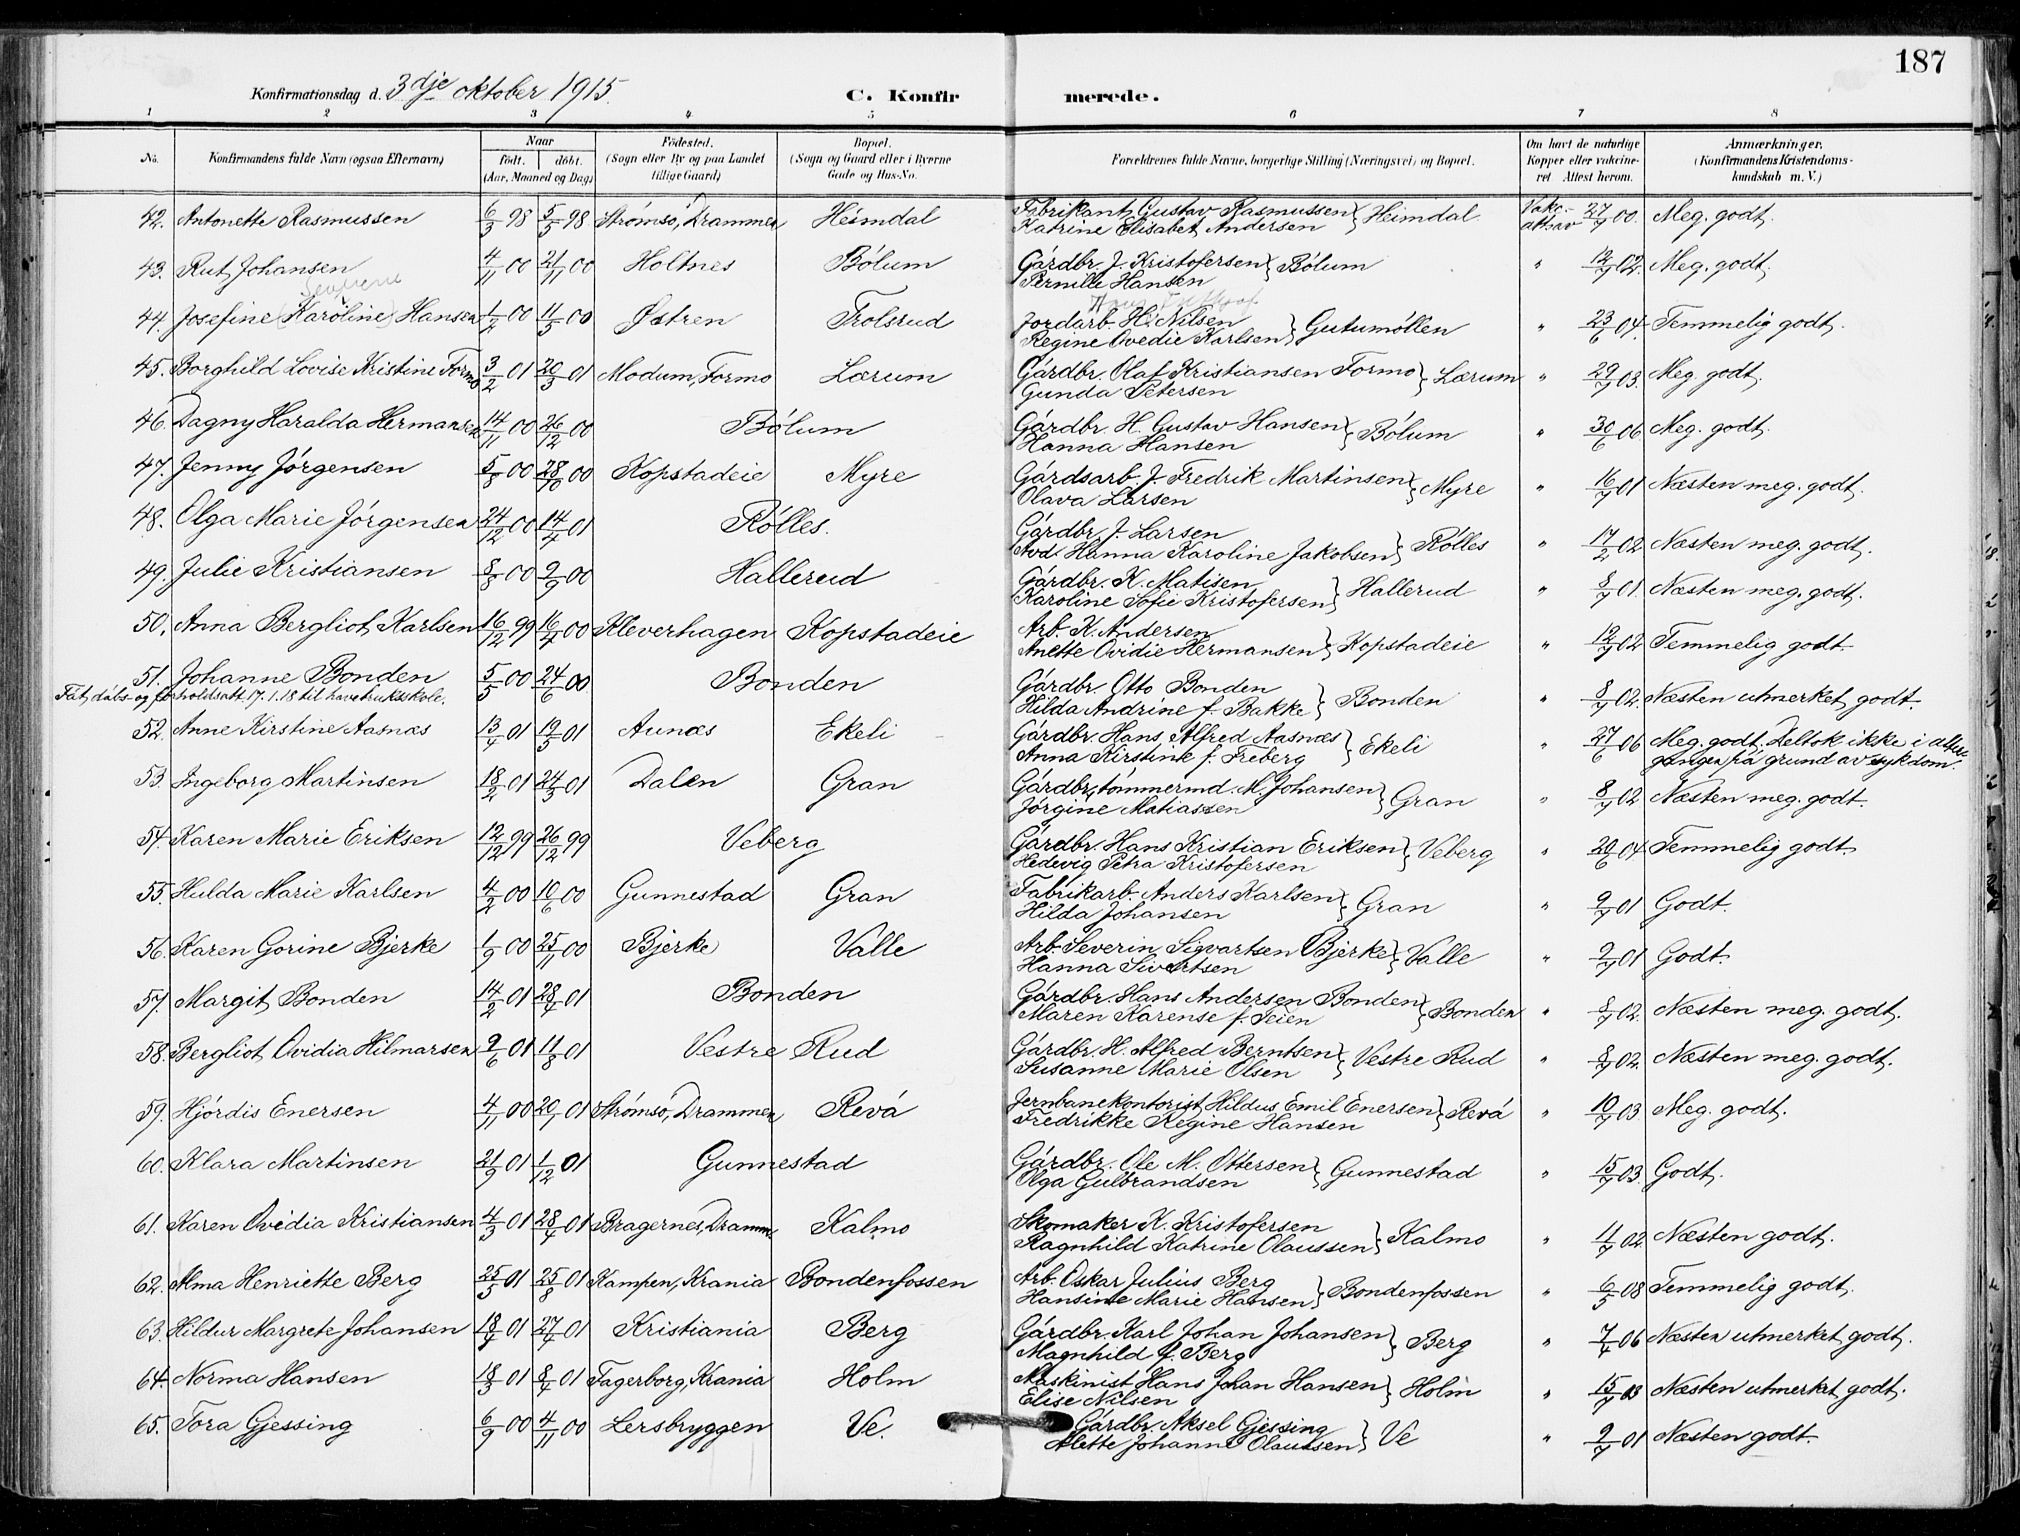 187
Konfirmationsdag d. 3dje oktober 1915.
C. Konfirmerede.
1 2 3 4 5 6 7 8
No. Konfirmandens fulde Navn (ogsaa Efternavn) Naar født. døbt. (Aar, Maaned og Dag) Fødested. (Sogn eller By og paa Landet tillige Gaard) Bopæl. (Sogn og Gaard eller i Byerne Gade og Hus-No. Forældrenes fulde Navne, borgerlige Stilling (Næringsvei) og Bopæl. Om havt de naturlige Kopper eller vakcineret. Attest herom. Anmærkninger. (Konfirmandens Kristendomskundskab m. V.)
42. Antonette Rasmussen 6/3 98 5/5 98 Strømsø, Drammen Heimdal Fabrikant Gustav Rasmussen Katrine Elisabet Andersen } Heimdal. Vakc.-attsav 27/7 00. Meg. godt.
43. Rut Johansen 4/11 00 21/11 00 Holtnes Bólum Gárdbr. J. Kristofersen Pernille Hansen } Bólum " 12/7 02. Meg. godt.
44. Josefine (Karoline) Hansen 1/2 00 11/5 00 Østren Trolsrud Jordarb. H. Nilsen Regine Ovedie Karlsen } Gutumóllen " 23/6 04. Temmelig godt.
45. Borghild Lovise Kristine Formo 3/2 01 20/3 01 Modum, Formo Lærum Gárdbr. Olaf Kristiansen Formo Gunda Petersen } Lærum " 29/7 03. Meg. godt.
46. Dagny Haralda Hermansen 14/11 00 26/12 00 Bólum Gárdbr. H. Gustav Hansen Hanna Hansen } Bólum " 30/6 06 Meg. godt.
47. Jenny Jórgensen 5/8 00 28/10 00 Kopstadeie Myre Gárdsarb. J. Fredrik Martinsen Olava Larsen } Myre " 16/7 01 Næsten meg. godt.
48. Olga Marie Jórgensen 24/12 00 14/4 01 Rólles. Gárdbr. J. Larsen Hanna Karoline Jakobsen } Rólles " 17/2 02 Næsten meg. godt.
49. Julie Kristiansen 8/8 00 9/9 00 Hallerud Gárdbr. K. Matisen Karoline Sofie Kristofersen } Hallerud " 8/7 01. Næsten meg. godt.
50. Anna Bergliot Karlsen 16/12 99 16/4 00 Kleverhagen Kopstadeie Arb. K. Andersen Anette Ovidie Hermansen } Kopstadeie " 12/7 02 Temmelig godt.
51. Johanne Bonden 5/5 00 24/6 00 Bonden Gárdbr. Otto Bonden Hilda Andrine f. Bakke } Bonden " 8/7 02. Næsten utmerket godt.
Fåt dåbs- og forholdsatt. 17.1.18 til havebruksskole.
52. Anne Kirstine Aasnæs 13/4 01 19/5 01 Aunæs Ekeli Gárdbr. Hans Alfred Aasnæs Anna Kirstine f. Freberg } Ekeli " 27/6 06 Meg. godt. Deltok ikke i altergangen på grund av sykdom.
53. Ingeborg Martinsen 18/2 01 24/3 01 Dalen Gran Gárdbr., tómmermd. M. Johansen Jørgine Matiassen } Gran " 8/7 02 Næsten meg. godt.
54. Karen Marie Eriksen 12/12 99 26/12 99 Veberg Gárdbr. Hans Kristian Eriksen Hedevig Petra Kristofersen } Veberg " 20/6 04 Temmelig godt.
55. Hulda Marie Karlsen 4/2 00 10/6 00 Gunnestad Gran Fabrikarb. Anders Karlsen Hilda Johansen } Gran " 9/7 01 Godt.
56. Karen Gorine Bjerke 1/9 00 25/11 00 Bjerke Valle Arb. Severin Sigvartsen Bjerke Hanna Sivertsen } Valle " 9/7 01 Godt.
57. Margit Bonden 14/2 01 28/4 01 Bonden Gárdbr. Hans Andersen Bonden Maren Karense f. Seien } Bonden " 8/7 02. Næsten meg. godt.
58. Bergliot Ovidia Hilmarsen 9/6 01 11/8 01 Vestre Rud Gárdbr. H. Alfred Berntsen Susanne Marie Olsen } Vestre Rud " 8/7 02. Næsten meg. godt.
59. Hjórdis Enersen 4/11 00 20/1 01 Strømsø, Drammen Revá Jernbanekontorist Hildus Emil Enersen Fredrikke Regine Hansen } Revá " 10/7 03. Meg. godt.
60. Klara Martinsen 21/9 01 1/12 01 Gunnestad Gárdbr. Ole M. Ottersen Olga Gulbrandsen } Gunnestad " 15/7 03. Godt.
61. Karen Ovidia Kristiansen 4/3 01 28/4 01 Bragernes, Dramm. Kalmo Skomaker K. Kristofersen Ragnhild Katrine Olaussen } Kalmo " 11/7 02. Næsten godt.
62. Alma Henriette Berg 25/5 01 25/8 01 Kampen, Krania Bondenfossen Arb. Oskar Julius Berg Hansine Marie Hansen } Bondenfossen " 6/5 08 Temmelig godt.
63. Hildur Margrete Johansen 18/1 01 27/4 01 Kristiania Berg Gárdbr. Karl Johan Johansen Magnhild f. Berg } Berg " 7/4 06 Næsten utmerket godt.
64. Norma Hansen 18/3 01 8/4 01 Fagerborg, Krania Holm Maskinist Hans Johan Hansen Elise Nilsen } Holm " 15/7 03 Næsten utmerket godt.
65. Tora Gjessing 6/9 00 4/11 00 Lersbryggen Ve. Gárdbr. Aksel Gjessing Alette Johanne Olaussen } Ve " 9/7 01 Næsten godt.